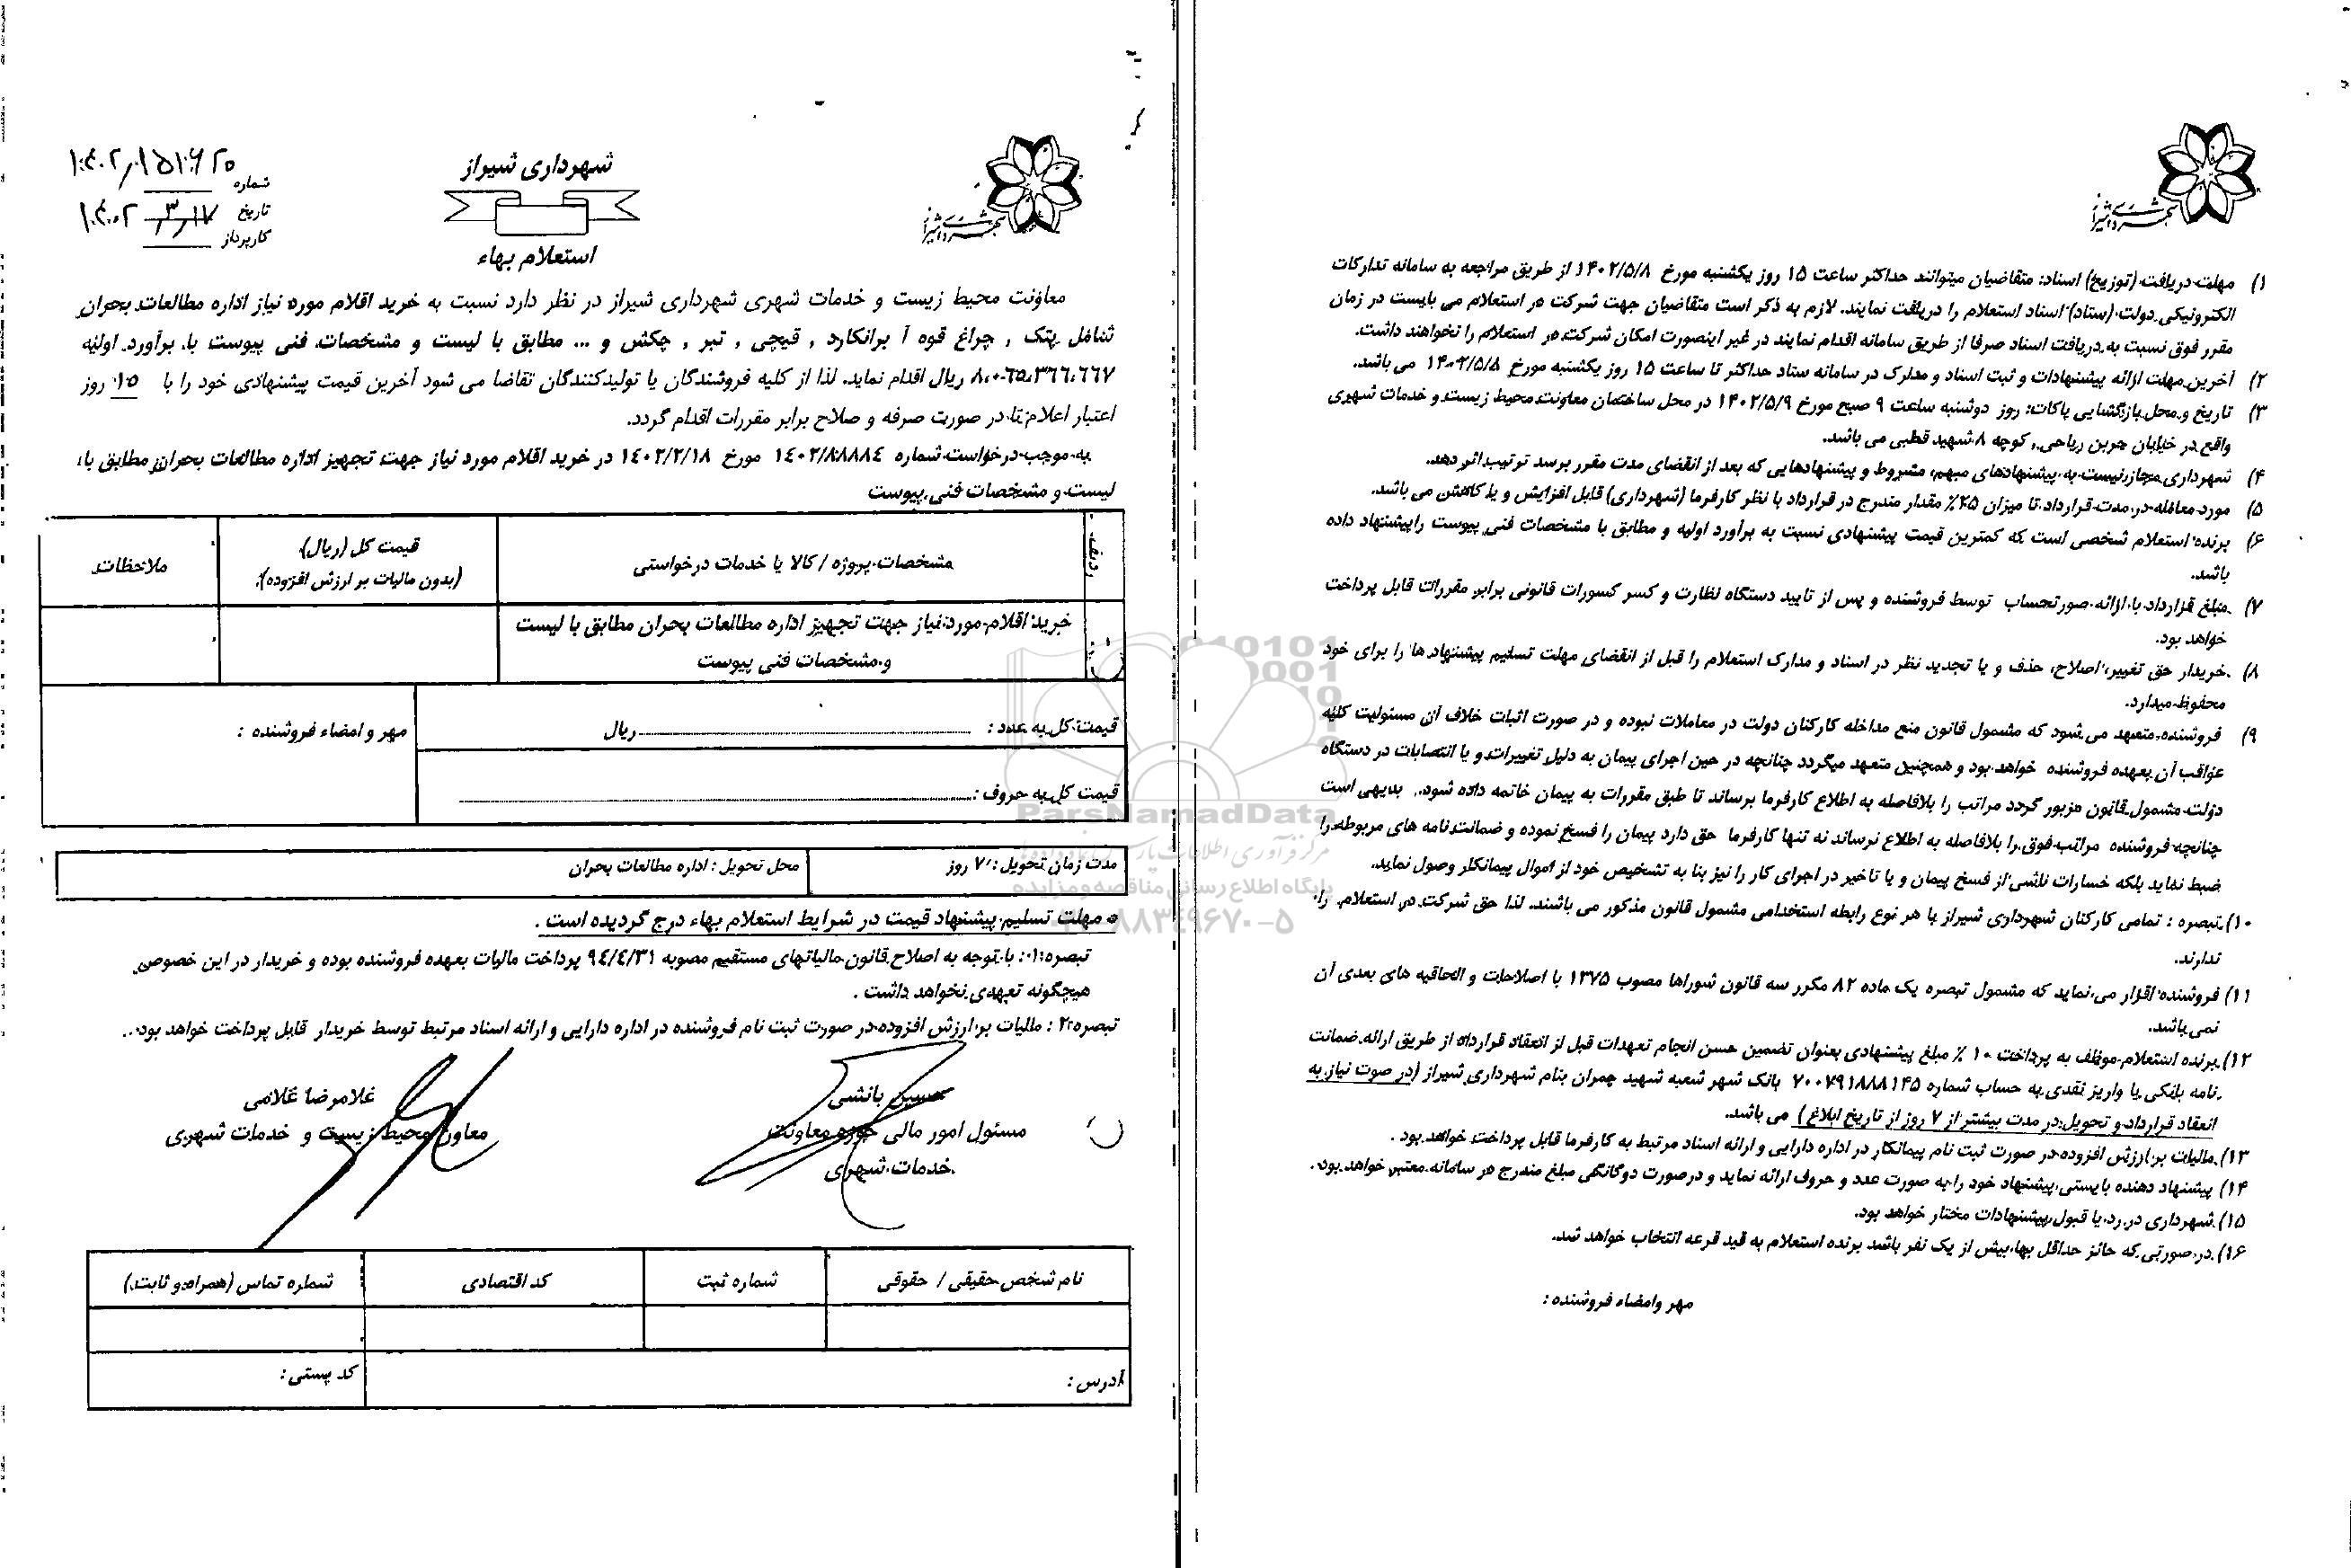 شهرداری شیراز
استعلام بهاء
شماره
تاریخ
کارپرداز
معاونت محیط زیست و خدمات شهری شهرداری شیراز در نظر دارد نسبت به خرید اقلام مورد نیاز اداره مطالعات بحران
شامل پتک , چراغ قوه , برانکارد , قیچی , تبر , چکش و ... مطابق با لیست و مشخصات فنی پیوست با برآورد اولیه
ریال اقدام نماید. لذا از کلیه فروشندگان یا تولیدکنندگان تقاضا می شود آخرین قیمت پیشنهادی خود را با ۱۵ روز
اعتبار اعلام تا در صورت صرفه و صلاح برابر مقررات اقدام گردد.
به موجب درخواست شماره ۱۴۰۲/۸۸۸۸۴ مورخ ۱۴۰۲/۲/۱۸ در خرید اقلام مورد نیاز جهت تجهیز اداره مطالعات بحران مطابق با
لیست و مشخصات فنی پیوست
ردیف
مشخصات پروژه / کالا یا خدمات درخواستی
قیمت کل (ریال)
(بدون مالیات بر ارزش افزوده)
ملاحظات
خرید اقلام مورد نیاز جهت تجهیز اداره مطالعات بحران مطابق با لیست
و مشخصات فنی پیوست
قیمت کل به عدد : ریال
مهر و امضاء فروشنده :
قیمت کل به حروف :
مدت زمان تحویل : ۷ روز
محل تحویل : اداره مطالعات بحران
مهلت تسلیم پیشنهاد قیمت در شرایط استعلام بهاء درج گردیده است .
تبصره ۱: با توجه به اصلاح قانون مالیاتهای مستقیم مصوبه ۹۴/۴/۳۱ پرداخت مالیات بعهده فروشنده بوده و خریدار در این خصوص
هیچگونه تعهدی نخواهد داشت .
تبصره ۲ : مالیات بر ارزش افزوده در صورت ثبت نام فروشنده در اداره دارایی و ارائه اسناد مرتبط توسط خریدار قابل پرداخت خواهد بود .
حسین بانشی
مسئول امور مالی حوزه معاونت
خدمات شهری
غلامرضا غلامی
معاون محیط زیست و خدمات شهری
نام شخص حقیقی / حقوقی
شماره ثبت
کد اقتصادی
شماره تماس (همراه و ثابت)
آدرس :
کد پستی :
۱) مهلت دریافت (توزیع) اسناد: متقاضیان میتوانند حداکثر ساعت ۱۵ روز یکشنبه مورخ ۱۴۰۲/۵/۸ از طریق مراجعه به سامانه تدارکات
الکترونیکی دولت (ستاد) اسناد استعلام را دریافت نمایند. لازم به ذکر است متقاضیان جهت شرکت در استعلام می بایست در زمان
مقرر فوق نسبت به دریافت اسناد صرفا از طریق سامانه اقدام نمایند در غیر اینصورت امکان شرکت در استعلام را نخواهند داشت.
۲) آخرین مهلت ارائه پیشنهادات و ثبت اسناد و مدارک در سامانه ستاد حداکثر تا ساعت ۱۵ روز یکشنبه مورخ ۱۴۰۲/۵/۸ می باشد.
۳) تاریخ و محل بازگشایی پاکات: روز دوشنبه ساعت ۹ صبح مورخ ۱۴۰۲/۵/۹ در محل ساختمان معاونت محیط زیست و خدمات شهری
واقع در خیابان حربن ریاحی , کوچه ۸ شهید قطبی می باشد.
۴) شهرداری مجاز نیست به پیشنهادهای مبهم، مشروط و پیشنهادهایی که بعد از انقضای مدت مقرر برسد ترتیب اثر دهد.
۵) مورد معامله در مدت قرارداد تا میزان ۲۵٪ مقدار مندرج در قرارداد با نظر کارفرما (شهرداری) قابل افزایش و یا کاهش می باشد.
۶) برنده استعلام شخصی است که کمترین قیمت پیشنهادی نسبت به برآورد اولیه و مطابق با مشخصات فنی پیوست را پیشنهاد داده
باشد.
۷) مبلغ قرارداد با ارائه صورتحساب توسط فروشنده و پس از تایید دستگاه نظارت و کسر کسورات قانونی برابر مقررات قابل پرداخت
خواهد بود.
۸) خریدار حق تغییر، اصلاح، حذف و یا تجدید نظر در اسناد و مدارک استعلام را قبل از انقضای مهلت تسلیم پیشنهاد ها را برای خود
محفوظ میدارد.
۹) فروشنده متعهد می شود که مشمول قانون منع مداخله کارکنان دولت در معاملات نبوده و در صورت اثبات خلاف آن مسئولیت کلیه
عواقب آن بعهده فروشنده خواهد بود و همچنین متعهد میگردد چنانچه در حین اجرای پیمان به دلیل تغییرات و یا انتصابات در دستگاه
دولت مشمول قانون مزبور گردد مراتب را بلافاصله به اطلاع کارفرما برساند تا طبق مقررات به پیمان خاتمه داده شود. بدیهی است
چنانچه فروشنده مراتب فوق را بلافاصله به اطلاع نرساند نه تنها کارفرما حق دارد پیمان را فسخ نموده و ضمانت نامه های مربوطه را
ضبط نماید بلکه خسارات ناشی از فسخ پیمان و یا تاخیر در اجرای کار را نیز بنا به تشخیص خود از اموال پیمانکار وصول نماید.
۱۰) تبصره : تمامی کارکنان شهرداری شیراز با هر نوع رابطه استخدامی مشمول قانون مذکور می باشند. لذا حق شرکت در استعلام را
ندارند.
۱۱) فروشنده اقرار می نماید که مشمول تبصره یک ماده ۸۲ مکرر سه قانون شوراها مصوب ۱۳۷۵ با اصلاحات و الحاقیه های بعدی آن
نمی باشد.
۱۲) برنده استعلام موظف به پرداخت ۱۰ ٪ مبلغ پیشنهادی بعنوان تضمین حسن انجام تعهدات قبل از انعقاد قرارداد از طریق ارائه ضمانت
نامه بانکی یا واریز نقدی به حساب شماره ۷۰۰۷۹۱۸۸۸۱۴۵ بانک شهر شعبه شهید چمران بنام شهرداری شیراز (در صوت نیاز به
انعقاد قرارداد و تحویل در مدت بیشتر از ۷ روز از تاریخ ابلاغ) می باشد.
۱۳) مالیات بر ارزش افزوده در صورت ثبت نام پیمانکار در اداره دارایی و ارائه اسناد مرتبط به کارفرما قابل پرداخت خواهد بود .
۱۴) پیشنهاد دهنده بایستی پیشنهاد خود را به صورت عدد و حروف ارائه نماید و در صورت دوگانگی مبلغ مندرج در سامانه معتبر خواهد بود .
۱۵) شهرداری در رد یا قبول پیشنهادات مختار خواهد بود.
۱۶) در صورتی که حائز حداقل بها بیش از یک نفر باشد برنده استعلام به قید قرعه انتخاب خواهد شد.
مهر و امضاء فروشنده :
ParsNamadData
پایگاه اطلاع رسانی مناقصه و مزایده